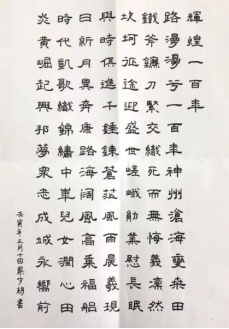 輝煌一百年
路漫漫兮一百年神州滄海變桑田
鐵斧鐮刀緊交織死而無悔義凜然
坎坷征途迎盛世嵯峨勛業慰長眠
與時俱進千錘鍊蒼茫風雨晨曦現
日新月異奔康路海闊風高乘福船
時代凱歌織錦繡中華兒女潤心田
炎黃崛起興邦夢眾志成城永嚮前
壬寅年三月十四 書